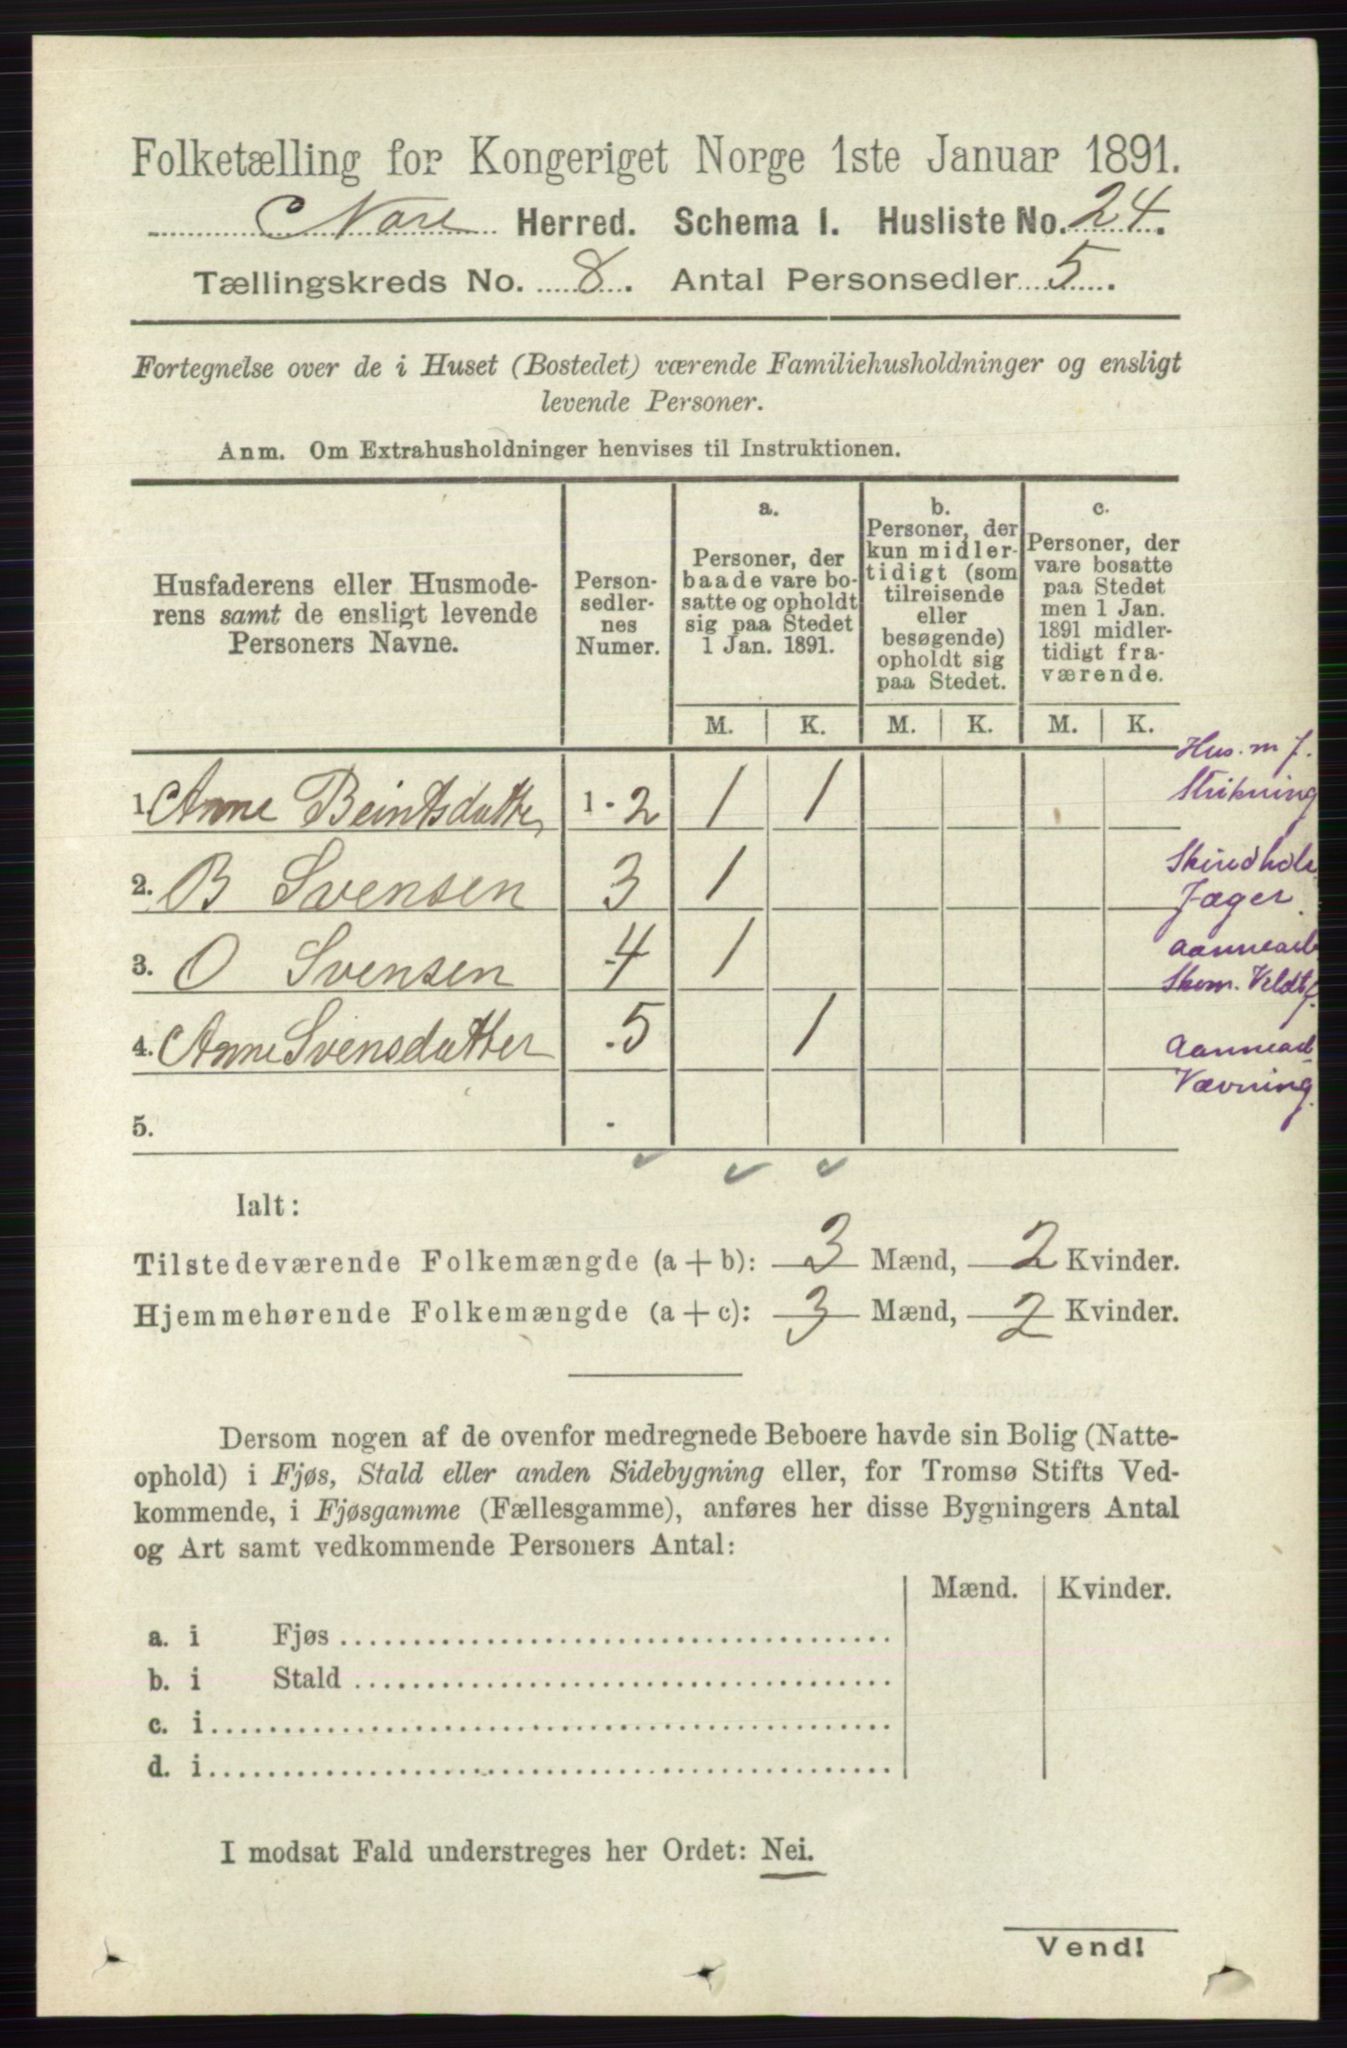 Folketælling for Kongeriget Norge 1ste Januar 1891.
Nore Herred. Schema I. Husliste No. 24.
Tællingskreds No. 8. Antal Personsedler 5.
Fortegnelse over de i Huset (Bostedet) værende Familiehusholdninger og ensligt
levende Personer.
Anm. Om Extrahusholdninger henvises til Instruktionen.
Husfaderens eller Husmode-
rens samt de ensligt levende
Personers Navne.
Person-
sedler-
nes
Numer.
a.
Personer, der
baade vare bo-
satte og opholdt
sig paa Stedet
1 Jan. 1891.
b.
Personer, der
kun midler-
tidigt (som
tilreisende
eller
besøgende)
opholdt sig
paa Stedet.
c.
Personer, der
vare bosatte
paa Stedet
men 1 Jan.
1891 midler-
tidigt fra-
værende.
M. K. M. K. M. K.
Hus. m J.
1. Anne Beintsdatter 1 - 2 1 1 Strikning
2. B Svensen 3 1 Skindhdl.
Jæger
3. O Svensen 4 1 aannearb
Skom. Veldtf.
4. Anne Svensdatter 5 1 Aannearb
Vævning
5.
Ialt:
Tilstedeværende Folkemængde (a + b): 3 Mænd, 2 Kvinder.
Hjemmehørende Folkemængde (a + c): 3 Mænd, 2 Kvinder.
Dersom nogen af de ovenfor medregnede Beboere havde sin Bolig (Natte-
ophold) i Fjøs, Stald eller anden Sidebygning eller, for Tromsø Stifts Ved-
kommende, i Fjøsgamme (Fællesgamme), anføres her disse Bygningers Antal
og Art samt vedkommende Personers Antal:
Mænd. Kvinder.
a. i Fjøs
b. i Stald
c. i
d. i
I modsat Fald understreges her Ordet: Nei.
Vend!